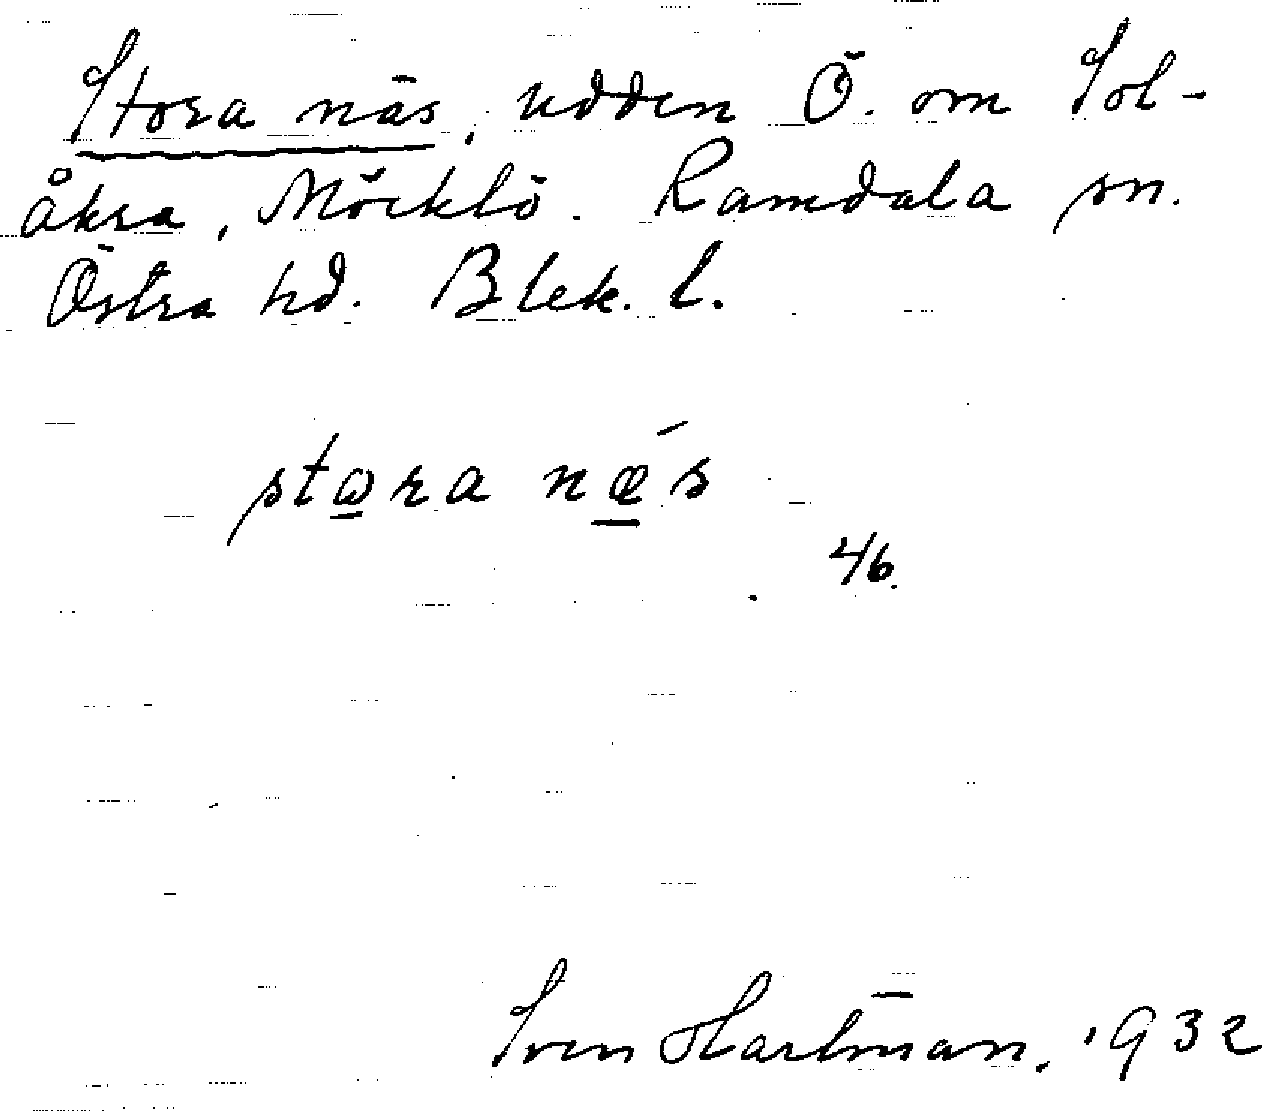 Stora näs, udden Ö. om Sol-
åkra, Möcklö. Ramdala sn.
Östra hd. Blek. l.
stωra næ´s
46.
Sven Hartman. 1932